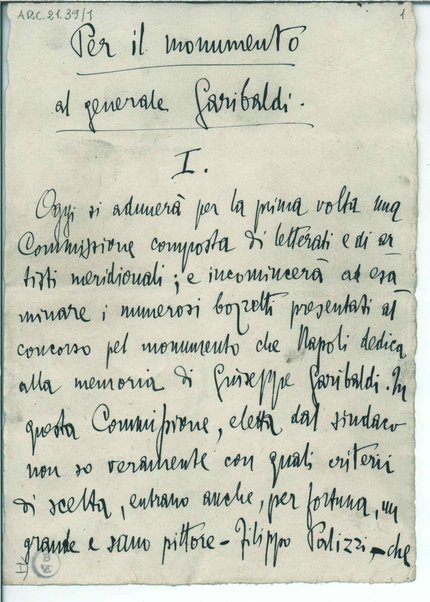 ARC.21.39/1
1
Per il monumento
al generale Garibaldi.
I.
Oggi si adunerà per la prima volta una
Commissione composta di letterati e di ar
tisti meridionali; e incomincerà ad esa
minare i numerosi bozzetti presentati al
concorso pel monumento che Napoli dedica
alla memoria di Giuseppe Garibaldi. In
questa Commissione, eletta dal sindaco
non so veramente con quali criterii
di scelta, entrano anche, per fortuna, un
grande e sano pittore – Filippo Palizzi, – che